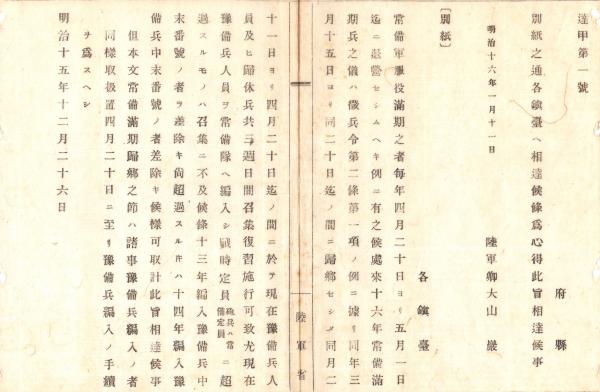 達甲第一號
府縣
別紙之通各鎭臺ヘ相達候條爲心得此旨相達候事
明治十六年一月十一日
陸軍卿大山巌
〔別紙〕
各鎭臺
常備軍服役滿期之者每年四月二十日ヨリ五月一日
迄ニ退營セシムヘキ例ニ有之候處來十六年常備滿
期兵之儀ハ徵兵令第二條第一項ノ例ニ據リ同年三
月十五日ヨリ同二十日迄ノ間ニ歸鄕セシメ同月二
陸軍省
十一日ヨリ四月二十日迄ノ間ニ於テ現在豫備兵人
員及ヒ歸休兵共三週日間召集復習施行可致尤現在
豫備兵人員ヲ常備隊ヘ編入シ戰時定員砲兵ハ常備定員ニ超
過スルモノハ召集ニ不及候條十三年編入豫備兵中
末番號ノ者ヲ差除キ尙超過スルキハ十四年編入豫
備兵中末番號ノ者差除キ候樣可取計此旨相達候事
但本文常備滿期歸鄕之節ハ諸事豫備兵編入ノ者
同樣取扱置四月二十日ニ至リ豫備兵編入ノ手續
ヲ爲スヘシ
明治十五年十二月二十六日